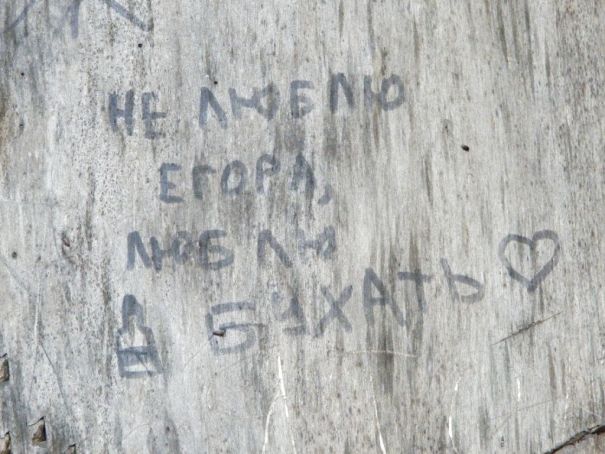 НЕ ЛЮБЛЮ
ЕГОРА,
ЛЮБЛЮ
БУХАТЬ